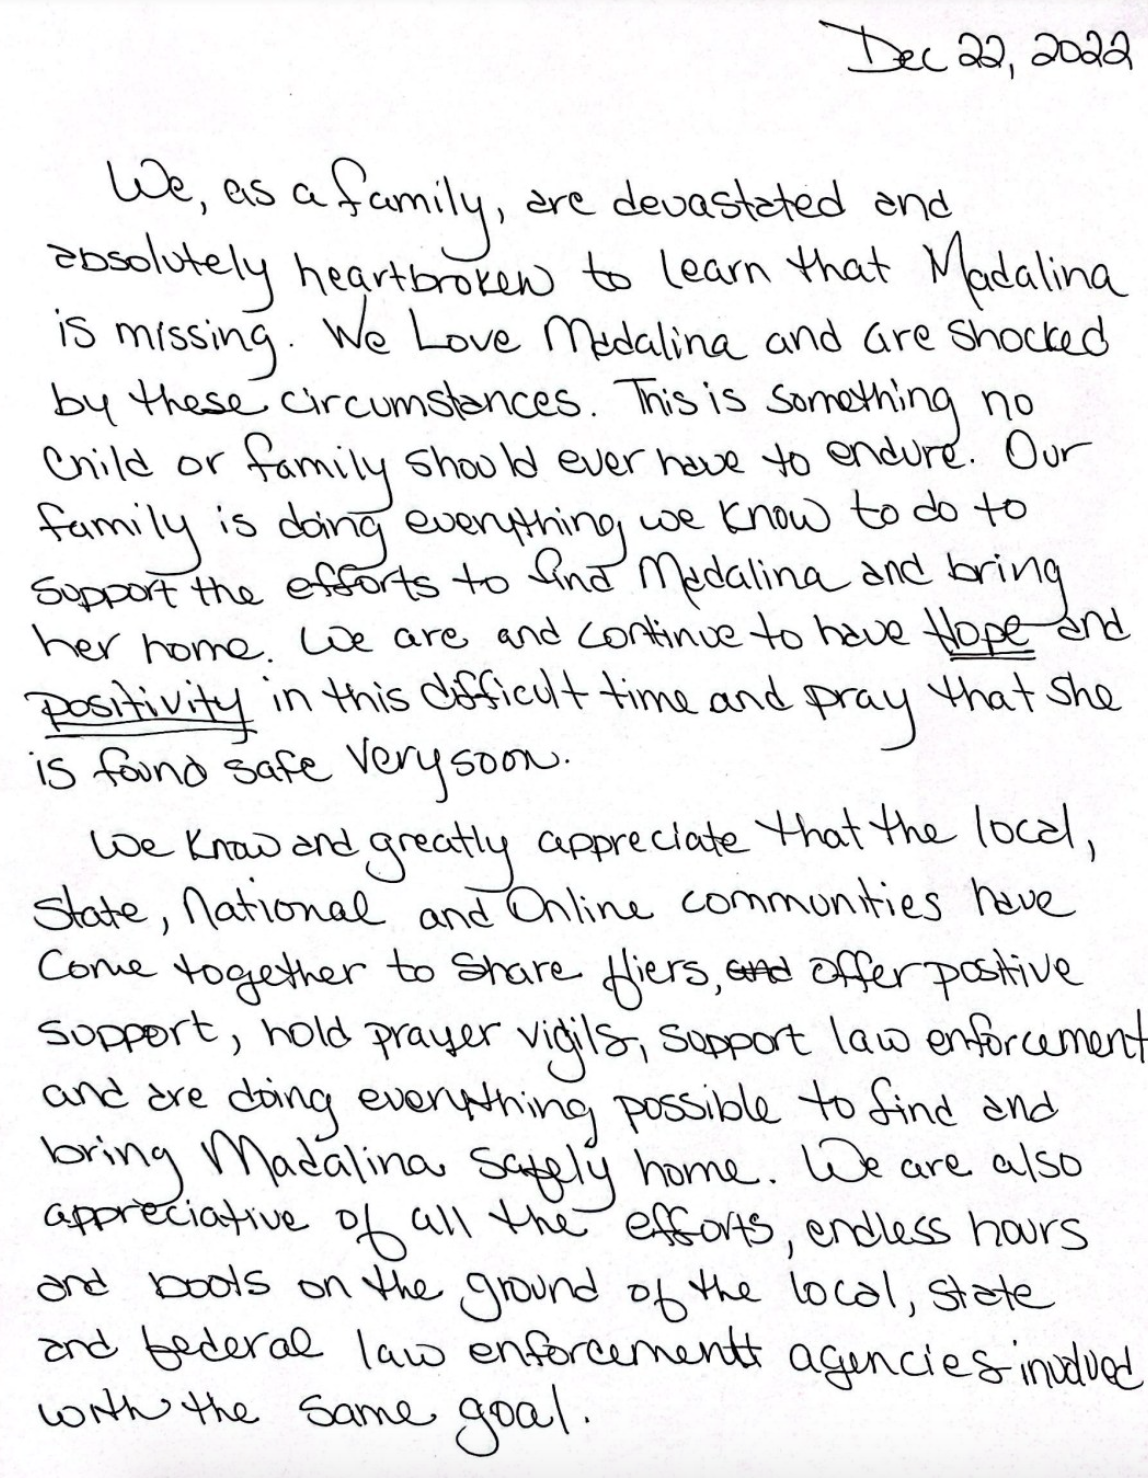 Dec 22, 2022
We, as a family, are devastated and
absolutely heartbroken to learn that Madalina
is missing. We Love Madalina and are shocked
by these circumstances. This is something no
child or family should ever have to endure. Our
family is doing everything we know to do to
support the efforts to find Madalina and bring
her home. We are and continue to have Hope and
positivity in this difficult time and pray that she
is found safe very soon.
We know and greatly appreciate that the local,
State, National and Online communities have
come together to share fliers, and offer positive
support, hold prayer vigils, support law enforcement
and are doing everything possible to find and
bring Madalina safely home. We are also
appreciative of all the efforts, endless hours
and boots on the ground of the local, state
and federal law enforcementt agencies involved
with the same goal.